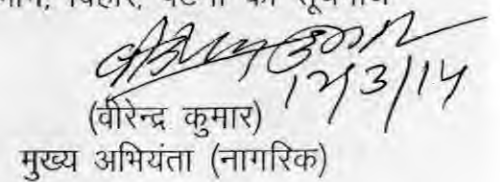 बिहार, पटना को सूचनार्थ
12/3/14
(वीरेन्द्र कुमार)
मुख्य अभियंता (नागरिक)